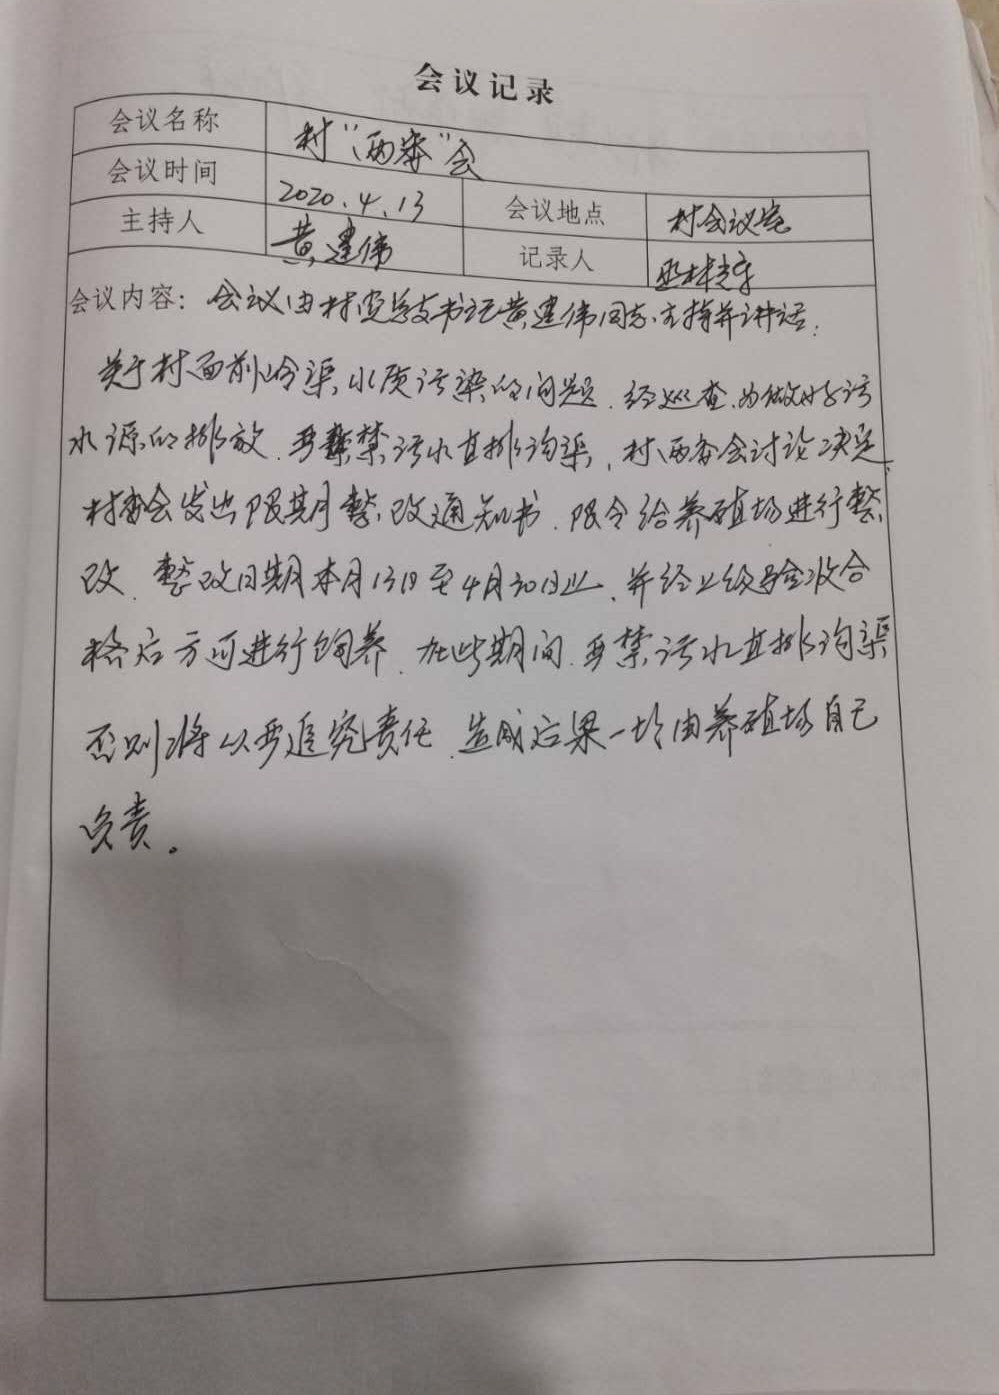 会议记录
会议名称 村“两委”会
会议时间 2020.4.13 会议地点 村会议室
主持人 黄建伟 记录人
会议内容：会议由村党总支书记黄建伟同志主持并讲话.
关于村面前冷渠水质污染的问题.经巡查.为做好污
水源的排放.严禁污水直排沟渠，村两委会讨论决定.
村委会发出限期整改通知书.限令给养殖场进行整
改.整改日期本月13日至4月30日止.并经上级验收合
格后方可进行饲养.在此期间.严禁污水直排沟渠
否则将以严追究责任.造成后果一切由养殖场自己
负责。